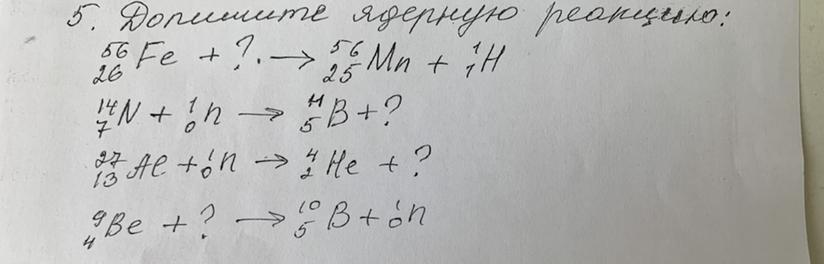 5. Допишите ядерную реакцию:
⁵⁶₂₆Fe + ?. → ⁵⁶₂₅Mn + ¹₁H
¹⁴₇N + ¹₀n → ¹¹₅B + ?
²⁷₁₃Al + ¹₀n → ⁴₂He + ?
⁹₄Be + ? → ¹⁰₅B + ¹₀n